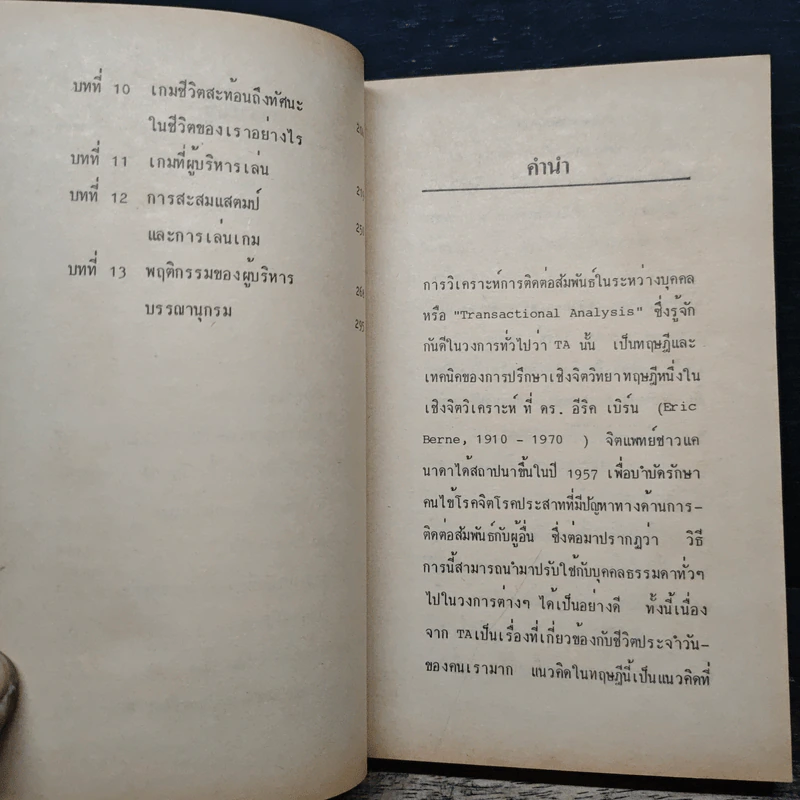 บทที่ 10 เกมชีวิตสะท้อนถึงทัศนะ
ในชีวิตของเราอย่างไร
บทที่ 11 เกมที่ผู้บริหารเล่น
บทที่ 12 การสะสมแสตมป์
และการเล่นเกม
บทที่ 13 พฤติกรรมของผู้บริหาร
บรรณานุกรม
คำนำ
การวิเคราะห์การติดต่อสัมพันธ์ในระหว่างบุคคล
หรือ "Transactional Analysis" ซึ่งรู้จัก
กันดีในวงการทั่วไปว่า TA นั้น เป็นทฤษฎีและ
เทคนิคของการปรึกษาเชิงจิตวิทยาทฤษฎีหนึ่งใน
เชิงจิตวิเคราะห์ ที่ ดร. อีริค เบิร์น (Eric
Berne, 1910 - 1970 ) จิตแพทย์ชาวแค
นาดาได้สถาปนาขึ้นในปี 1957 เพื่อบำบัดรักษา
คนไข้โรคจิตโรคประสาทที่มีปัญหาทางด้านการ-
ติดต่อสัมพันธ์กับผู้อื่น ซึ่งต่อมาปรากฏว่า วิธี
การนี้สามารถนำมาปรับใช้กับบุคคลธรรมดาทั่วๆ
ไปในวงการต่างๆ ได้เป็นอย่างดี ทั้งนี้เนื่อง
จาก TAเป็นเรื่องที่เกี่ยวข้องกับชีวิตประจำวัน-
ของคนเรามาก แนวคิดในทฤษฎีนี้เป็นแนวคิดที่